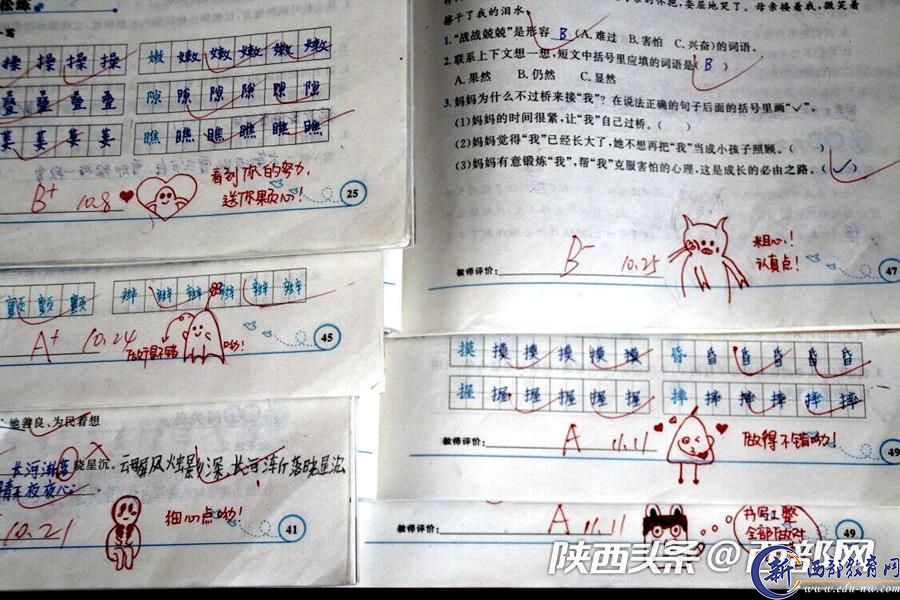 松练
写
操 操 操 操 嫩 嫩 嫩 嫩 嫩 嫩
叠 叠 叠 叠 隙 隙 隙 隙 隙 隙
萎 萎 萎 萎 瞧 瞧 瞧 瞧 瞧 瞧
B+ 10.8
看到你的努力,
送你颗心!
25
擦干了我的泪水。
1.“战战兢兢”是形容 B (A.难过 B.害怕 C.兴奋)的词语。
2.联系上下文想一想,短文中括号里应填的词语是( B )
A.果然 B.仍然 C.显然
3.妈妈为什么不过桥来接“我”?在说法正确的句子后面的括号里画“✓”。
(1)妈妈的时间很紧,让“我”自己过桥。( )
(2)妈妈觉得“我”已经长大了,她不想再把“我”当成小孩子照顾。( )
(3)妈妈有意锻炼“我”,帮“我”克服害怕的心理,这是成长的必由之路。(✓)
教师评价: B- 10.25
粗心!
认真点!
47
颤 颤 颤 辫 辫 辫 辫 辫 辫
A+ 10.24
做得不错 哟!
45
摸 摸 摸 摸 摸 摸 昏 昏 昏 昏 昏 昏
握 握 握 握 握 握 摔 摔 摔 摔 摔 摔
教师评价: A 11.11
做得不错哟!
49
善良、为民着想
长河渐落 晓星沉。云屏风烛影深,长河渐落晓星沉
夜夜心
10.21
细心点哟!
41
教师评价: A 11.11
书写工整
全部做对
49
陕西头条@西部网
新 西部教育网
www.edu-nw.com